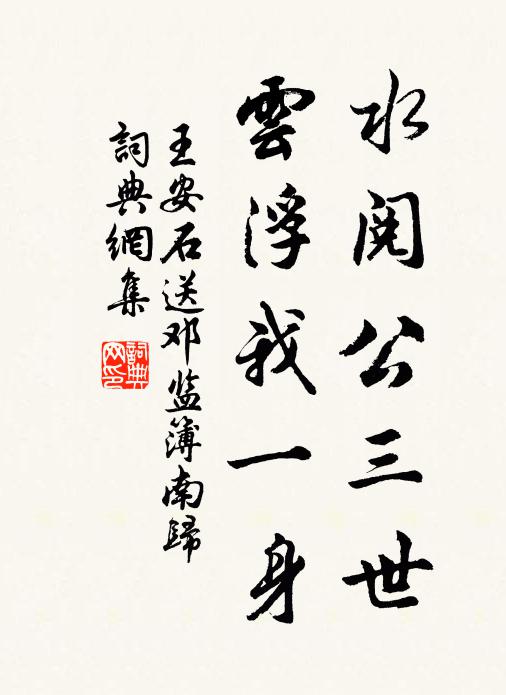 水閱公三世
雲浮我一身
王安石送邓监簿南歸
詞典網集
詞典網印